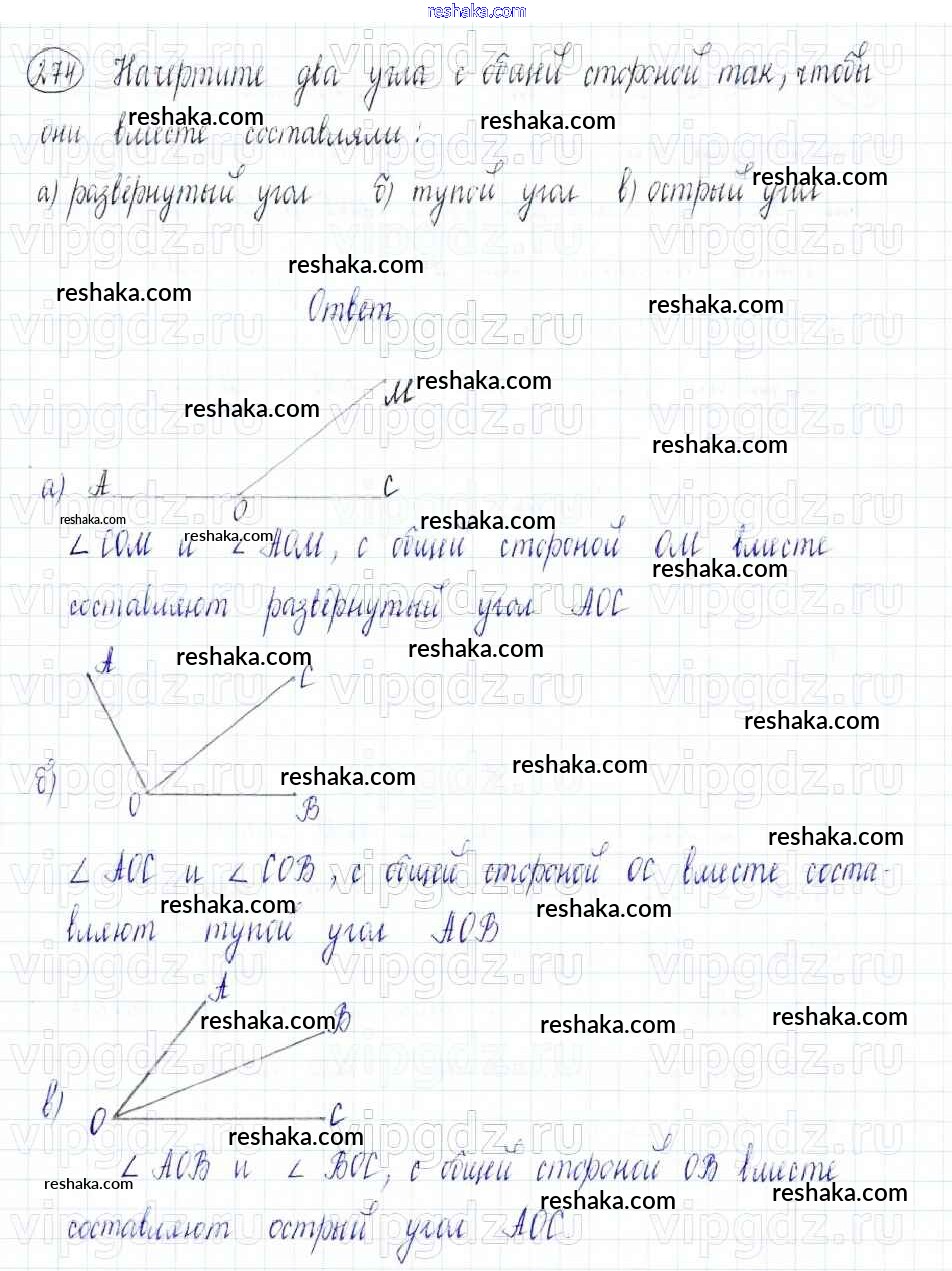 reshaka.com
274 Начертите два угла с общей стороной так, чтобы
reshaka.com reshaka.com
они вместе составляли:
reshaka.com
а) развёрнутый угол б) тупой угол в) острый угол
reshaka.com
reshaka.com reshaka.com
Ответ
reshaka.com
М
reshaka.com
reshaka.com
а) А О С
reshaka.com reshaka.com reshaka.com
∠ СОМ и ∠ АОМ, с общей стороной ОМ вместе
reshaka.com
составляют развёрнутый угол АОС
reshaka.com reshaka.com
А С
reshaka.com
reshaka.com reshaka.com
б) О В
reshaka.com
∠ АОС и ∠ СОВ, с общей стороной ОС вместе соста-
reshaka.com reshaka.com
вляют тупой угол АОВ
А
reshaka.com В reshaka.com reshaka.com
в) О С
reshaka.com
∠ АОВ и ∠ ВОС, с общей стороной ОВ вместе
reshaka.com reshaka.com reshaka.com
составляют острый угол АОС